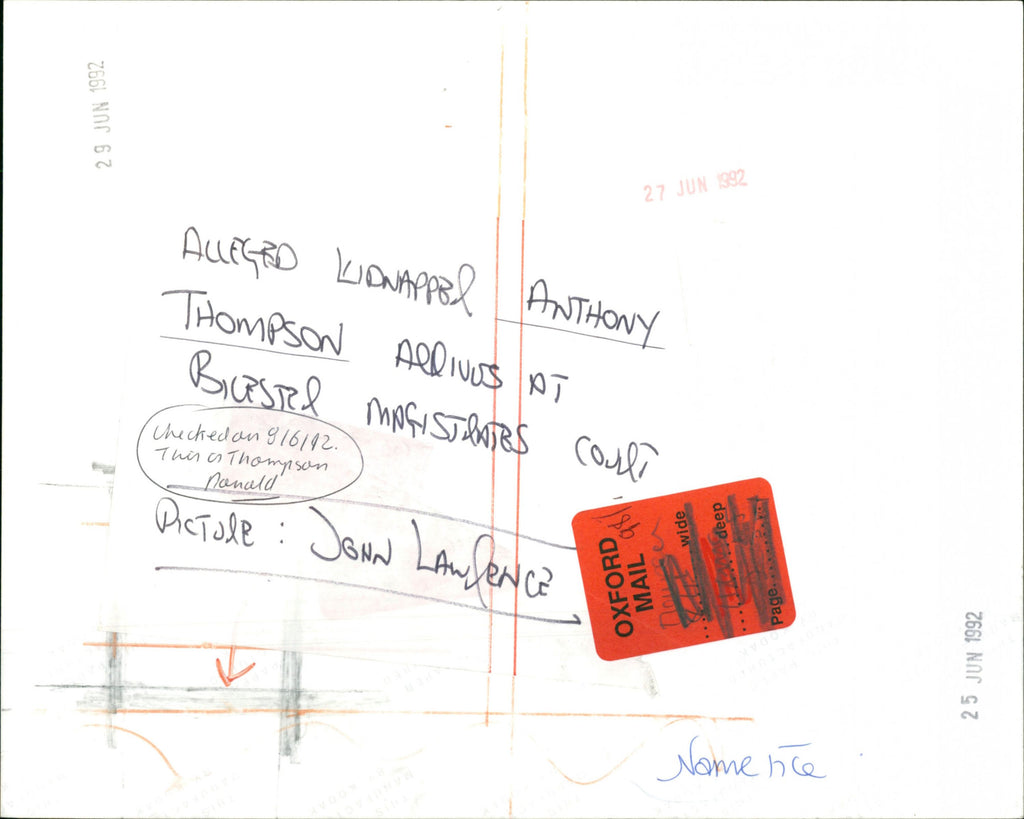 29 JUN 1992
27 JUN 1992
ALLEGED KIDNAPPER ANTHONY
THOMPSON ARRIVES AT
BICESTER MAGISTRATES COURT
Checked on 9/6/92.
This is Thompson
Ronald
PICTURE : JOHN LAWRENCE
OXFORD
MAIL
wide
deep
Page
25 JUN 1992
Name